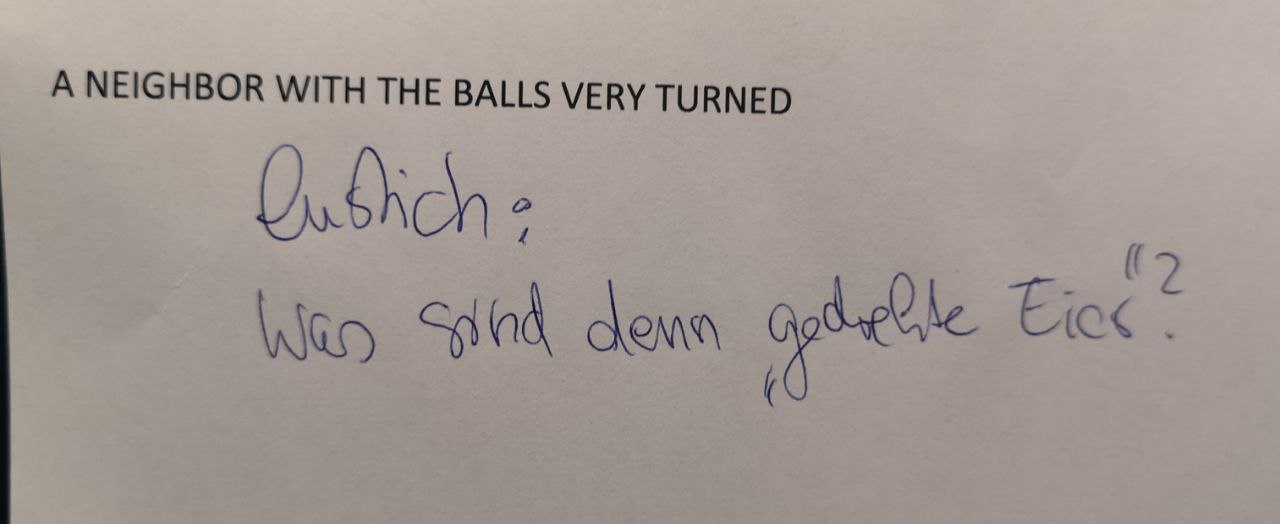 A NEIGHBOR WITH THE BALLS VERY TURNED
Was sind denn „gedrehte Eier"?